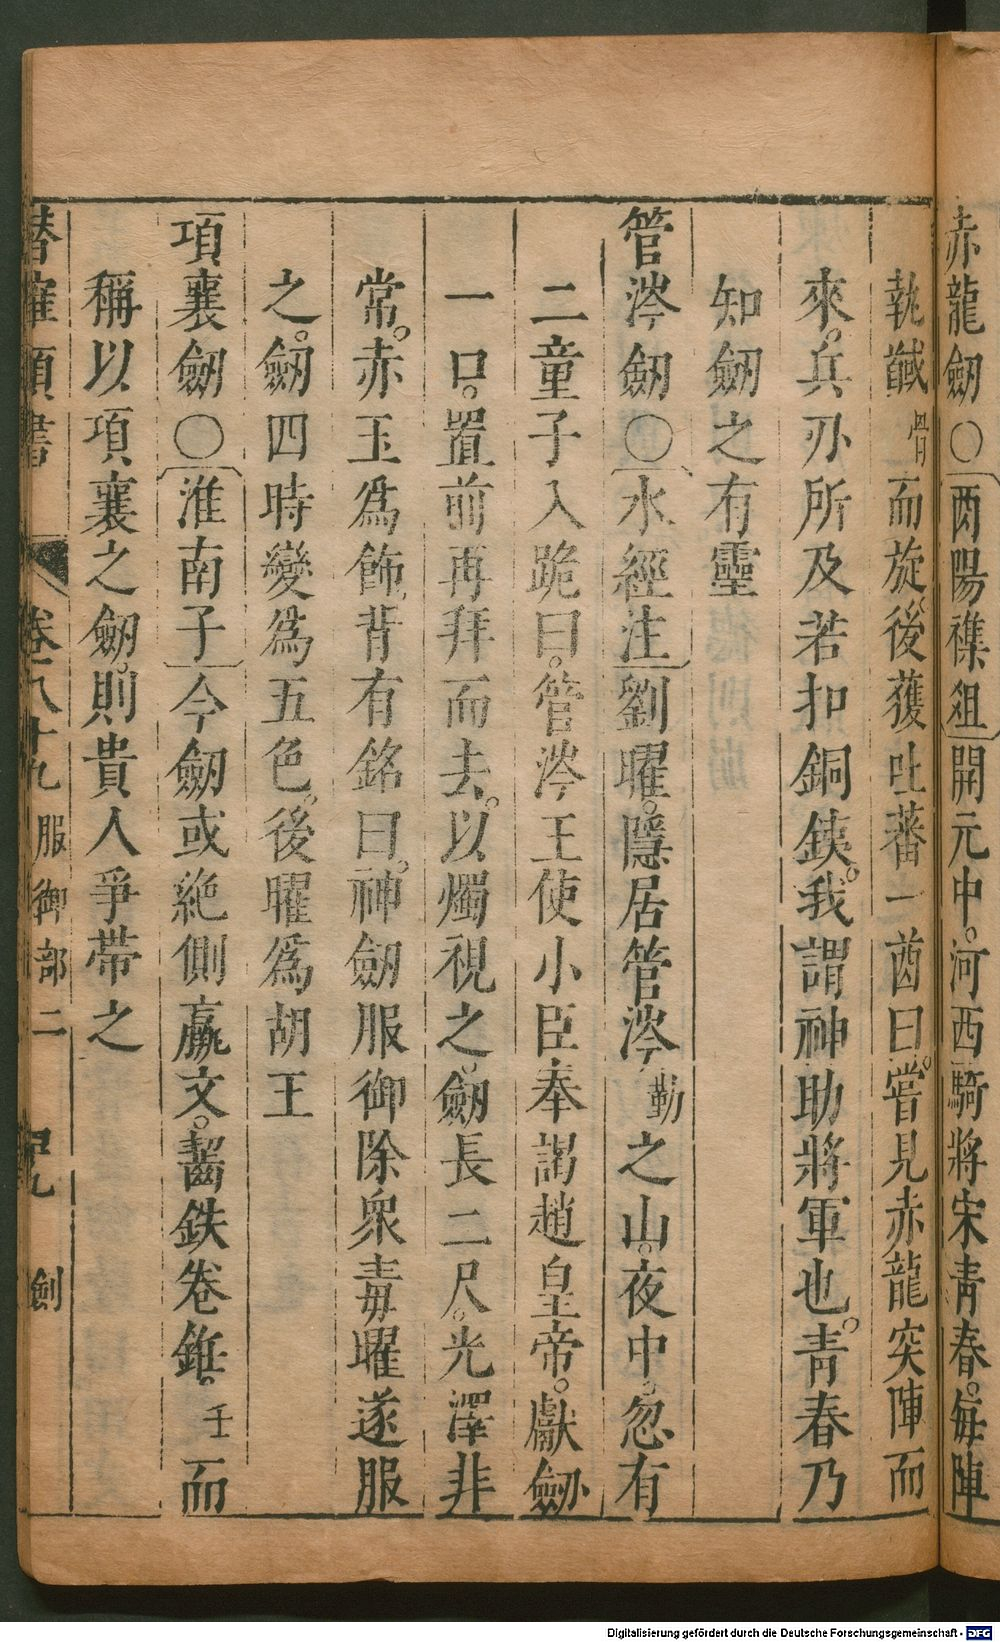 赤龍劒○酉陽襍俎開元中。河西騎將宋青春。每陣
執馘骨而旋。後獲吐蕃一酋曰。嘗見赤龍突陣而
來。兵刃所及若扣銅鉄。我謂神助將軍也。青春乃
知劒之有靈
管涔劒○水經注劉曜。隱居管涔勤之山。夜中。忽有
二童子入跪曰。管涔王使小臣奉謁趙皇帝。獻劒
一口。置前再拜而去。以燭視之。劒長二尺。光澤非
常。赤玉為飾。背有銘曰。神劒服御除衆毒曜遂服
之。劒四時變為五色。後曜為胡王
項襄劒○淮南子今劒或絶側羸文。齧鉄卷銋。壬而
稱以項襄之劒。則貴人爭帶之
潛確類書 卷八十九 服御部二 四九 劍
Digitalisierung gefördert durch die Deutsche Forschungsgemeinschaft - DFG